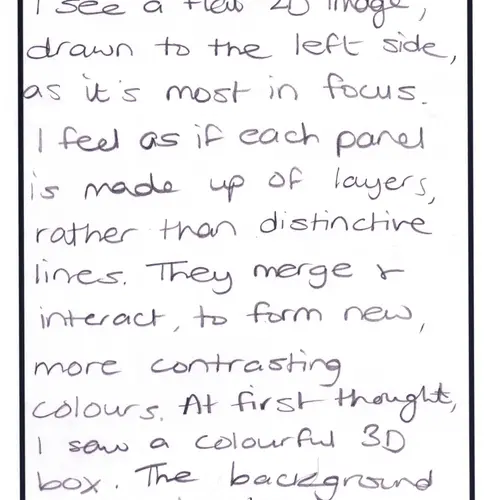 I see a flat 2D image,
drawn to the left side,
as it's most in focus.
I feel as if each panel
is made up of layers,
rather than distinctive
lines. They merge &
interact, to form new,
more contrasting
colours. At first thought,
I saw a colourful 3D
box. The background